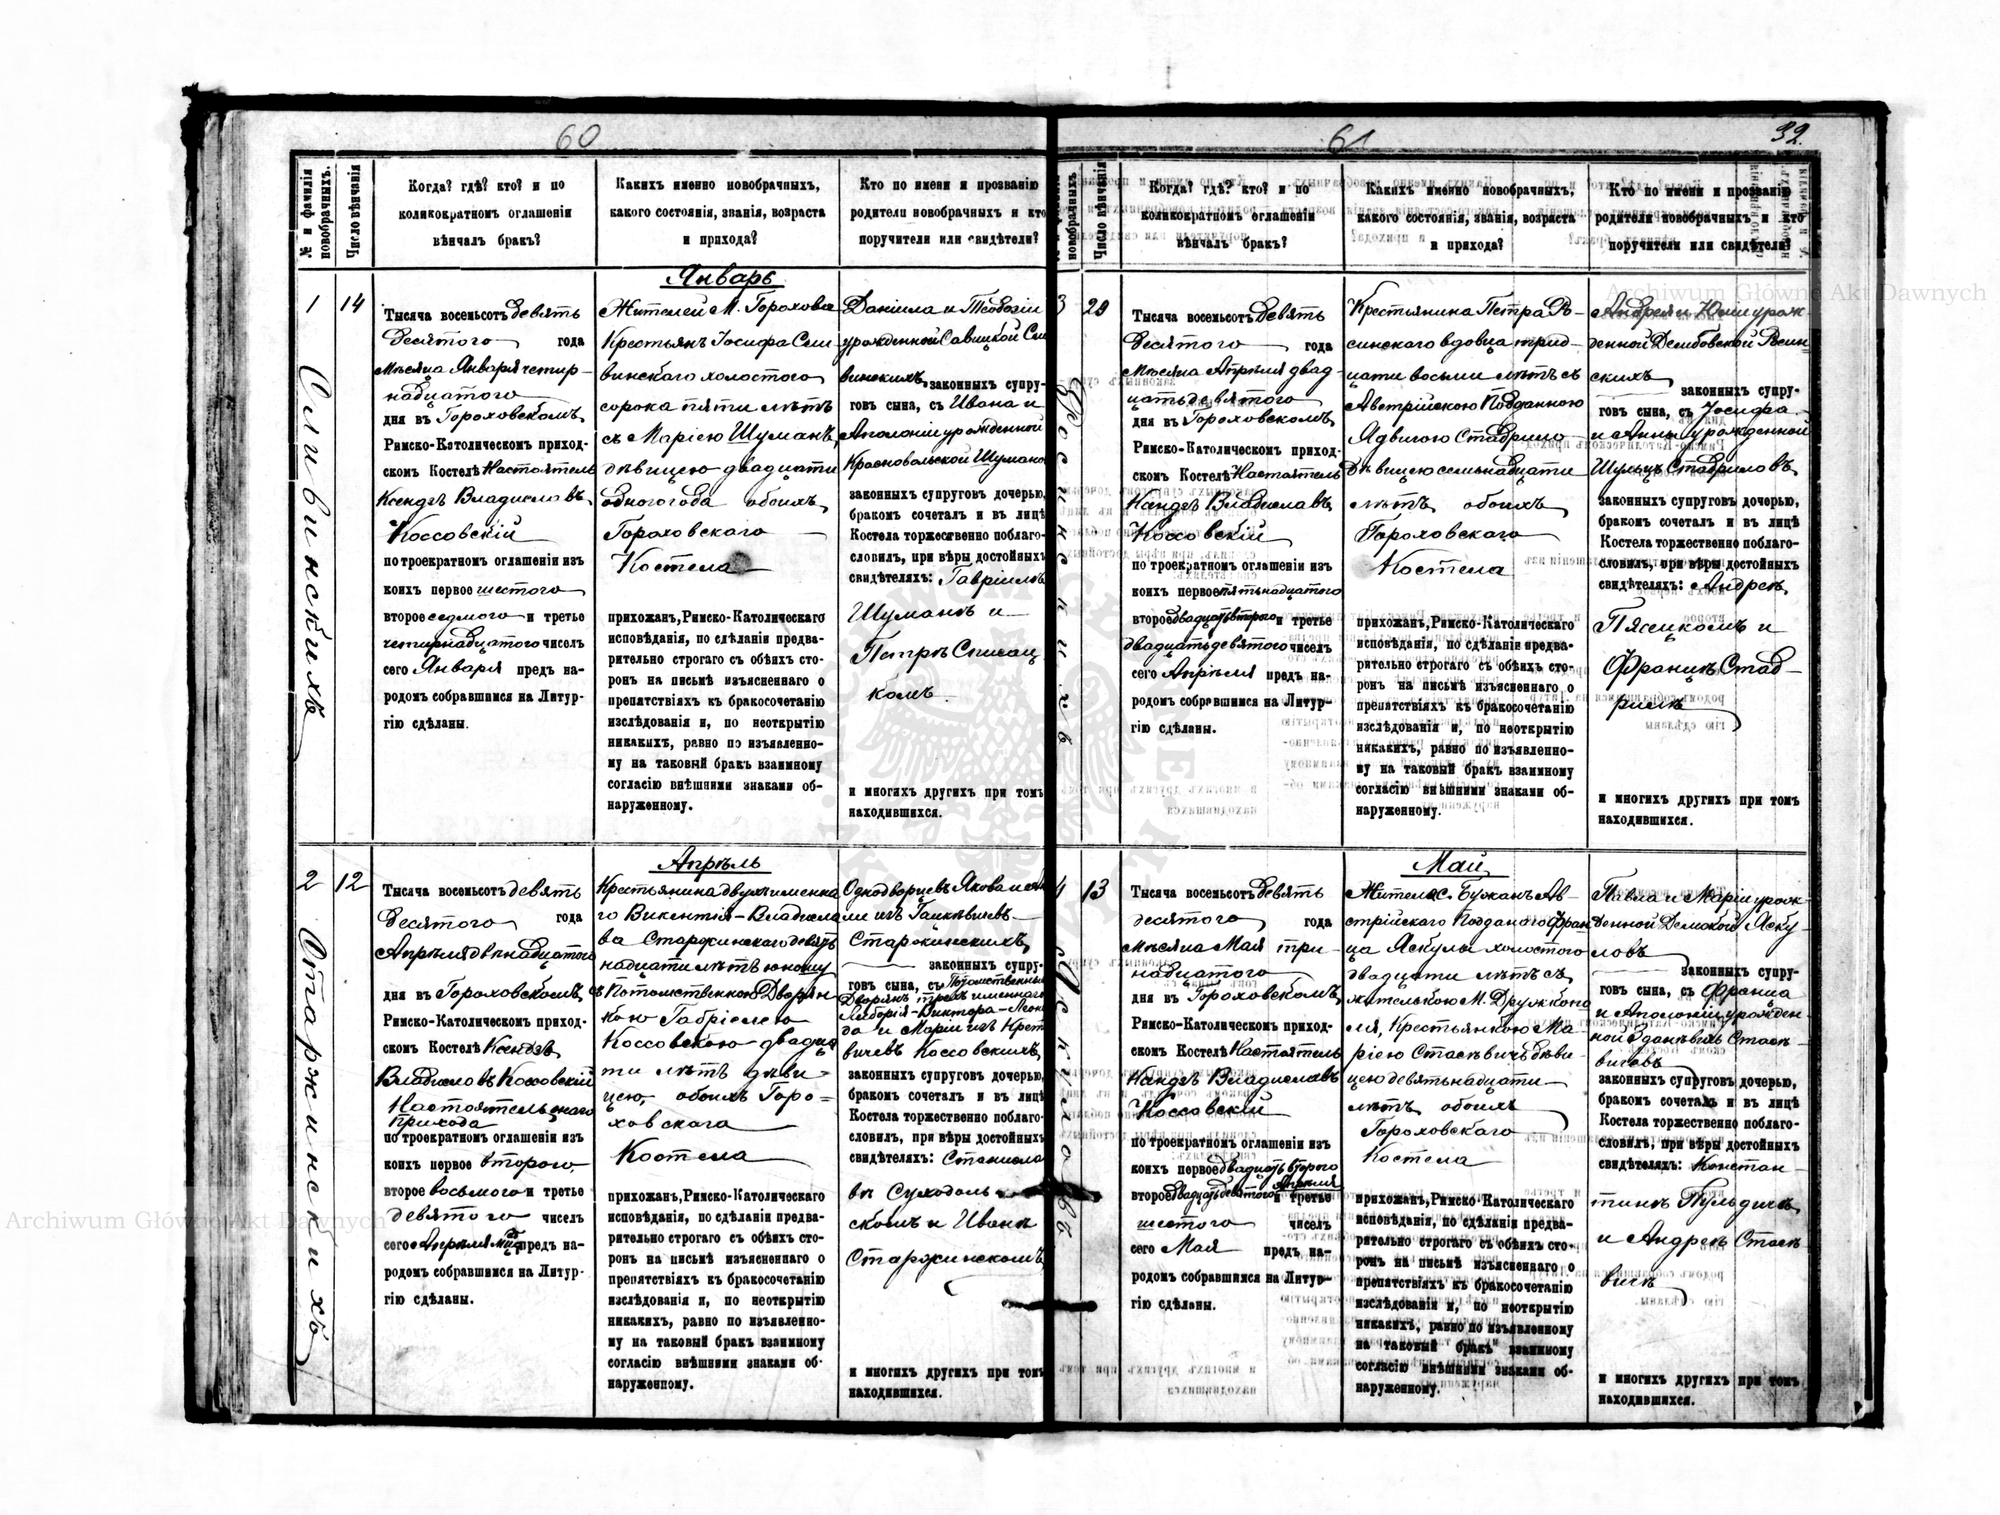 60
№ и фамилія новобрачныхъ.
Число вѣнчанія
Когда? гдѣ? кто? и по
коликократномъ оглашеніи
вѣнчалъ бракъ?
Какихъ именно новобрачныхъ,
какого состоянія, званія, возраста
и прихода?
Кто по имени и прозванію
родители новобрачныхъ и кто
поручители или свидѣтели?
Январь
1
14
Сливинскихъ
Тысяча восемьсотъ девять
десятого года
Мѣсяца Января четыр-
надцатого
дня въ Гороховскомъ
Римско-Католическомъ приход-
скомъ Костелѣ Настоятель
Ксендзъ Владиславъ
Коссовскій
по троекратномъ оглашеніи изъ
коихъ первое шестого
второе седмого и третье
четырнадцатого чиселъ
сего Января предъ на-
родомъ собравшимся на Литур-
гію сдѣланы.
Жителей М. Горохова
Крестьянъ Іосифа Сли-
винскаго холостого
сорока пяти лѣтъ
съ Маріею Шуманъ,
дѣвицею двадцати
одного года обоихъ
Гороховскаго
Костела
прихожанъ, Римско-Католическаго
исповѣданія, по сдѣланіи предва-
рительно строгаго съ обѣихъ сто-
ронъ на письмѣ изъясненнаго о
препятствіяхъ къ бракосочетанію
изслѣдованія и, по неоткрытію
никакихъ, равно по изъявленно-
му на таковый бракъ взаимному
согласію внѣшними знаками об-
наруженному.
Даніила и Теодозіи
урожденной Савицкой Сли
винскихъ законныхъ супру-
говъ сына, съ Ивана и
Аполоніи урожденной
Красновольской Шуманъ
законныхъ супруговъ дочерью,
бракомъ сочеталъ и въ лицѣ
Костела торжественно поблаго-
словилъ, при вѣры достойныхъ
свидѣтеляхъ: Гавріилѣ
Шуманѣ и
Петрѣ Списац
комъ
и многихъ другихъ при томъ
находившихся.
Апрѣль
2
12
Старжинскихъ
Тысяча восемьсотъ девять
десятого года
Апрѣля двѣнадцатого
дня въ Гороховскомъ
Римско-Католическомъ приход-
скомъ Костелѣ Ксендзъ
Владиславъ Коссовскій
Настоятель сего
прихода
по троекратномъ оглашеніи изъ
коихъ первое второго
второе восьмого и третье
девятого чиселъ
сего Апрѣля мца предъ на-
родомъ собравшимся на Литур-
гію сдѣланы.
Крестьянина двухъименна
го Викентія-Владисла
ва Старжинскаго девять
надцати лѣтъ юношу
съ Потомственною Дворян
кою Габріелею
Коссовскою двадца
ти лѣтъ дѣви-
цею, обоихъ Горо-
ховскаго
Костела
прихожанъ, Римско-Католическаго
исповѣданія, по сдѣланіи предва-
рительно строгаго съ обѣихъ сто-
ронъ на письмѣ изъясненнаго о
препятствіяхъ къ бракосочетанію
изслѣдованія и, по неоткрытію
никакихъ, равно по изъявленно-
му на таковый бракъ взаимному
согласію внѣшними знаками об-
наруженному.
Однодворцевъ Якова и
изъ
Старжинскихъ
законныхъ супру-
говъ сына, съ Потомственныхъ
Дворянъ трехъименнаго
Либорія-Виктора-Леона
да и Маріи изъ
Коссовскихъ
законныхъ супруговъ дочерью,
бракомъ сочеталъ и въ лицѣ
Костела торжественно поблаго-
словилъ, при вѣры достойныхъ
свидѣтеляхъ: Станисла
вѣ Суходоль-
скомъ и Иванѣ
Старжинскомъ
и многихъ другихъ при томъ
находившихся.
61
32.
новобрачныхъ
Число вѣнчанія
Когда? гдѣ? кто? и по
коликократномъ оглашеніи
вѣнчалъ бракъ?
Какихъ именно новобрачныхъ,
какого состоянія, званія, возраста
и прихода?
Кто по имени и прозванію
родители новобрачныхъ и кто
поручители или свидѣтели?
3
29
Тысяча восемьсотъ девять
десятого года
Мѣсяца Апрѣля двад-
цать девятого
дня въ Гороховскомъ
Римско-Католическомъ приход-
скомъ Костелѣ Настоятель
Ксендзъ Владиславъ
Коссовскій
по троекратномъ оглашеніи изъ
коихъ первое пятьнадцатого
второе двадцать второго и третье
двадцать девятого чиселъ
сего Апрѣля предъ на-
родомъ собравшимся на Литур-
гію сдѣланы.
Крестьянина Петра Ро-
синского вдовца трид-
цати восьми лѣтъ съ
Австрійскою Подданою
Ядвигою Ставрило
дѣвицею семьнадцати
лѣтъ обоихъ
Гороховскаго
Костела
прихожанъ, Римско-Католическаго
исповѣданія, по сдѣланіи предва-
рительно строгаго съ обѣихъ сто-
ронъ на письмѣ изъясненнаго о
препятствіяхъ къ бракосочетанію
изслѣдованія и, по неоткрытію
никакихъ, равно по изъявленно-
му на таковый бракъ взаимному
согласію внѣшними знаками об-
наруженному.
Андрея и Юліи урож-
денной Делибовской Росин
скихъ
законныхъ супру-
говъ сына, съ Іосифа
и Анны урожденной
Шульцъ Ставриловъ
законныхъ супруговъ дочерью,
бракомъ сочеталъ и въ лицѣ
Костела торжественно поблаго-
словилъ, при вѣры достойныхъ
свидѣтеляхъ: Андреѣ
Пясецкомъ и
Францѣ Став-
рилѣ
и многихъ другихъ при томъ
находившихся.
Май
4
13
Яскуловъ
Тысяча восемьсотъ девять
десятого года
Мѣсяца Мая три-
надцатого
дня въ Гороховскомъ
Римско-Католическомъ приход-
скомъ Костелѣ Настоятель
Ксендзъ Владиславъ
Коссовскій
по троекратномъ оглашеніи изъ
коихъ первое двадцать второго
второе двадцать девятого Апрѣля и третье
шестого чиселъ
сего Мая предъ на-
родомъ собравшимся на Литур-
гію сдѣланы.
Жителя с. Бужанъ Ав-
стрійскаго Подданого Фран
ца Яскула холостого
двадцати лѣтъ съ
жителькою М. Дружкопо
ля, Крестьянкою Ма-
ріею Стасѣвичъ дѣви-
цею девятьнадцати
лѣтъ обоихъ
Гороховскаго
Костела
прихожанъ, Римско-Католическаго
исповѣданія, по сдѣланіи предва-
рительно строгаго съ обѣихъ сто-
ронъ на письмѣ изъясненнаго о
препятствіяхъ къ бракосочетанію
изслѣдованія и, по неоткрытію
никакихъ, равно по изъявленному
на таковый бракъ взаимному
согласію внѣшними знаками об-
наруженному.
Павла и Маріи урож-
денной Яску-
ловъ
законныхъ супру-
говъ сына, съ Франца
и Аполоніи урожден-
ной Зданѣвичъ Стасѣ-
вичевъ
законныхъ супруговъ дочерью,
бракомъ сочеталъ и въ лицѣ
Костела торжественно поблаго-
словилъ, при вѣры достойныхъ
свидѣтеляхъ: Констан-
тинѣ
и Андреѣ Стасѣ
вичѣ
и многихъ другихъ при томъ
находившихся.
Archiwum Główne Akt Dawnych
Archiwum Główne Akt Dawnych